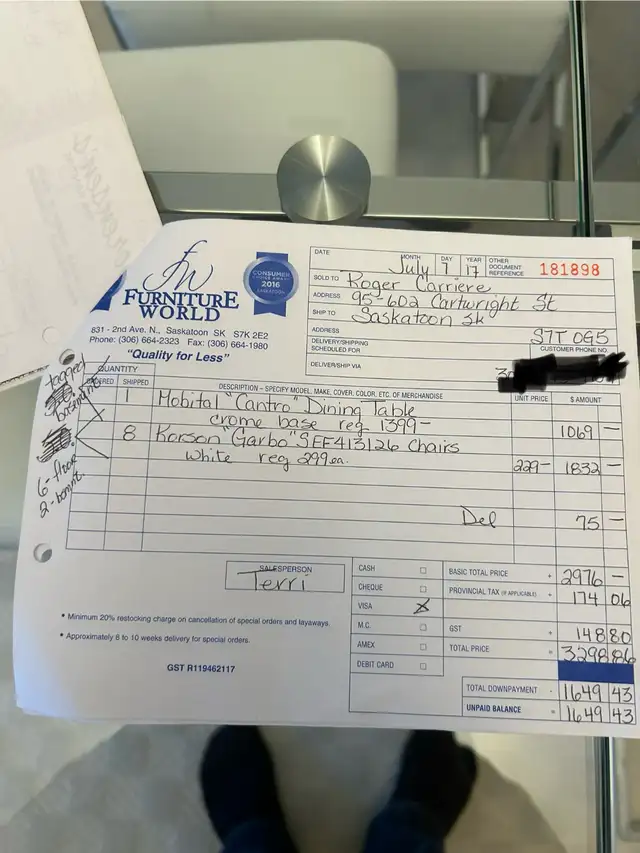 fw
FURNITURE
WORLD
CONSUMER
CHOICE AWARD
2016
SASKATOON
831 - 2nd Ave. N., Saskatoon SK S7K 2E2
Phone: (306) 664-2323 Fax: (306) 664-1980
"Quality for Less"
DATE MONTH July DAY 7 YEAR 17 OTHER DOCUMENT REFERENCE 181898
SOLD TO Roger Carriere
ADDRESS 95-602 Cartwright St
SHIP TO Saskatoon Sk
ADDRESS S7T 0G5
DELIVERY/SHIPPING SCHEDULED FOR CUSTOMER PHONE NO.
DELIVER/SHIP VIA
tagged
6-floor
2-
QUANTITY
ORDERED SHIPPED DESCRIPTION – SPECIFY MODEL, MAKE, COVER, COLOR, ETC. OF MERCHANDISE UNIT PRICE $ AMOUNT
1 Mobital "Cantro" Dining Table
crome base reg 1399- 1069 -
8 Korson "Garbo" SEF413126 Chairs
white reg 299 ea. 229- 1832 -
Del 75 -
SALESPERSON
Terri
• Minimum 20% restocking charge on cancellation of special orders and layaways.
• Approximately 8 to 10 weeks delivery for special orders.
GST R119462117
CASH
CHEQUE
VISA X
M.C.
AMEX
DEBIT CARD
BASIC TOTAL PRICE + 2976 -
PROVINCIAL TAX (IF APPLICABLE) + 174 06
GST + 148 80
TOTAL PRICE = 3298 86
TOTAL DOWNPAYMENT - 1649 43
UNPAID BALANCE = 1649 43